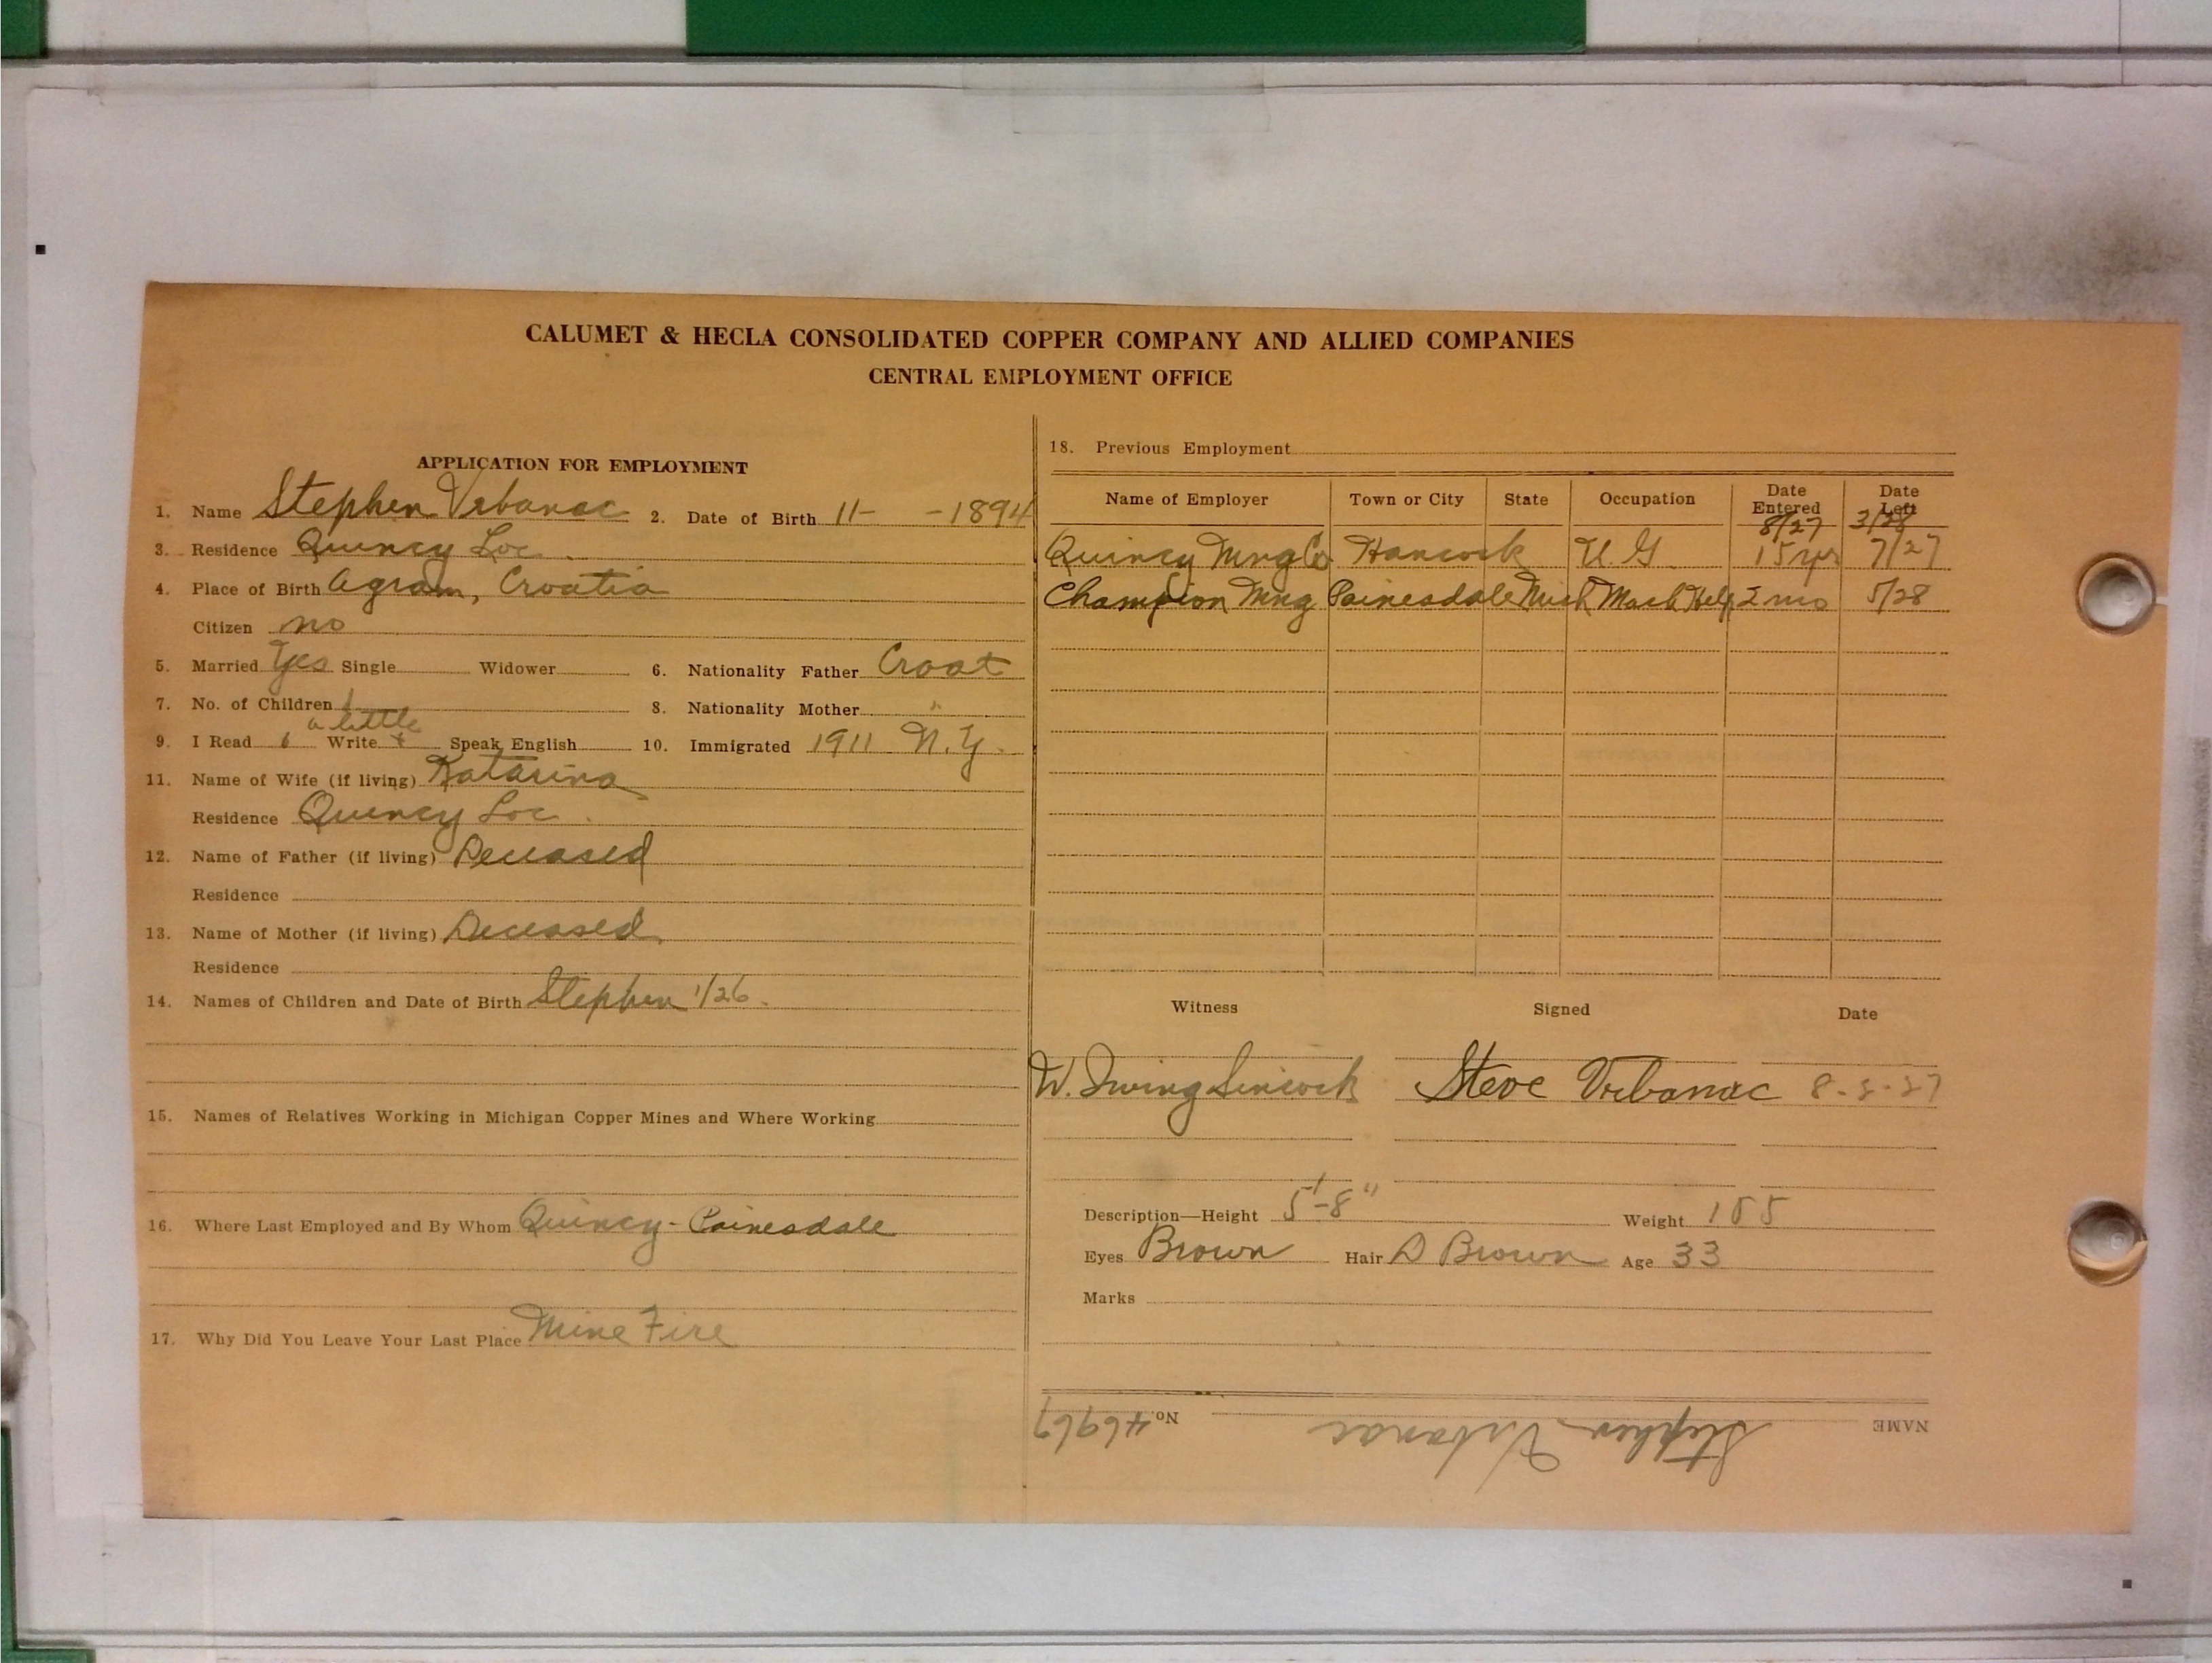 CALUMET & HECLA CONSOLIDATED COPPER COMPANY AND ALLIED COMPANIES
CENTRAL EMPLOYMENT OFFICE
APPLICATION FOR EMPLOYMENT
1. Name Stephen Vrbanac 2. Date of Birth 11- -1894
3. Residence Quincy Loc.
4. Place of Birth Agram, Croatia
Citizen no
5. Married Yes Single Widower 6. Nationality Father Croat
7. No. of Children 1 8. Nationality Mother "
a little
9. I Read Write Speak English 10. Immigrated 1911 N.Y.
11. Name of Wife (if living) Katarina
Residence Quincy Loc.
12. Name of Father (if living) Deceased
Residence
13. Name of Mother (if living) Deceased
Residence
14. Names of Children and Date of Birth Stephen 1/26.
15. Names of Relatives Working in Michigan Copper Mines and Where Working
16. Where Last Employed and By Whom Quincy - Painesdale
17. Why Did You Leave Your Last Place Mine Fire
18. Previous Employment
Name of Employer Town or City State Occupation Date Entered Date Left
8/27 3/28
Quincy Mng Co Hancock U.G. 15 yrs 7/27
Champion Mng Painesdale Mich Mach Help 2 mo 5/28
Witness Signed Date
W. Irving Sincock Steve Vrbanac 8-2-27
Description—Height 5'-8" Weight 155
Eyes Brown Hair D Brown Age 33
Marks
NAME Stephen Vrbanac No. 46967